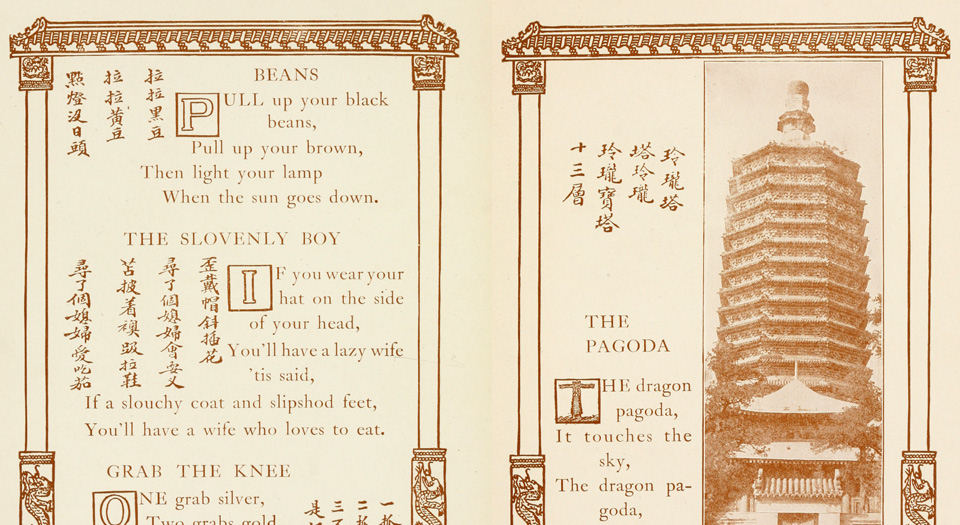 BEANS
拉拉黑豆
拉拉黃豆
點燈没日頭
PULL up your black
beans,
Pull up your brown,
Then light your lamp
When the sun goes down.
THE SLOVENLY BOY
歪戴帽斜插花
尋了個媳婦會
披着襖趿拉鞋
尋了個媳婦愛吃茄
IF you wear your
hat on the side
of your head,
You'll have a lazy wife
'tis said,
If a slouchy coat and slipshod feet,
You'll have a wife who loves to eat.
GRAB THE KNEE
一
二
三
是
ONE grab silver,
Two grabs gold
玲瓏塔
塔玲瓏
玲瓏寶塔
十三層
THE
PAGODA
THE dragon
pagoda,
It touches the
sky,
The dragon pa-
goda,